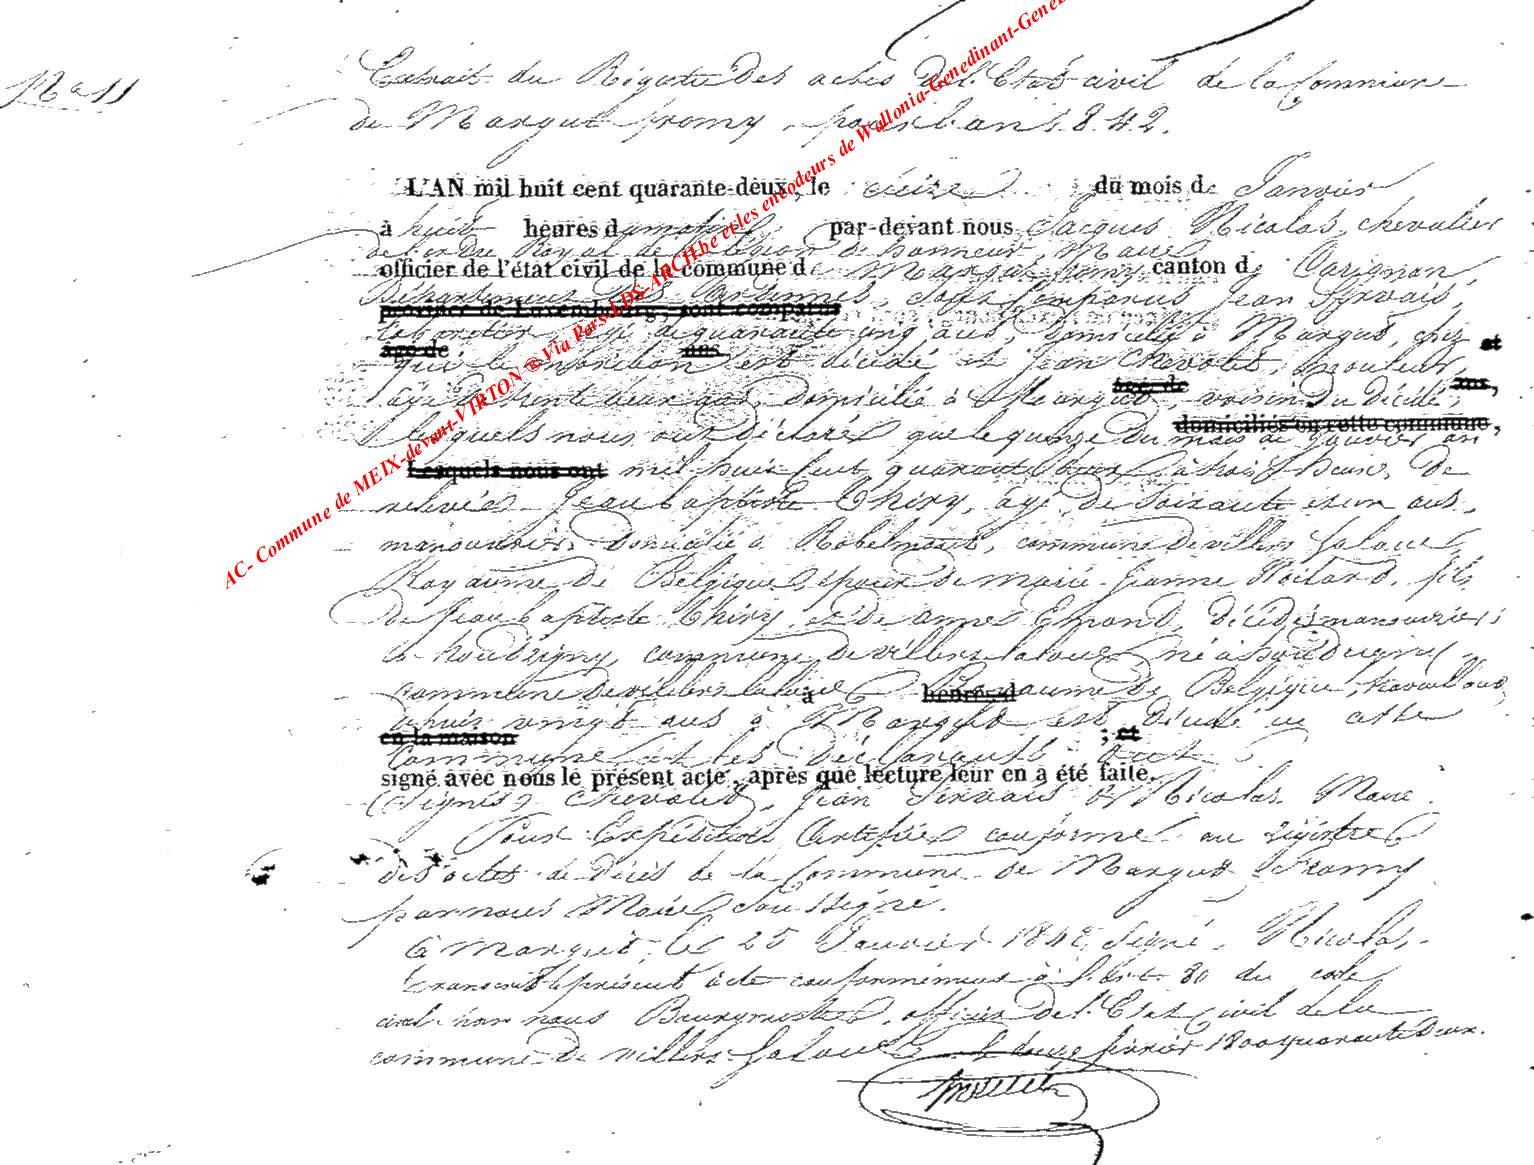 N° 11
Extrait du Régistre des actes de l'Etat civil de la Commune
de Margut fromy, pour l'an 1842.
L'AN mil huit cent quarante-deux, le seize du mois de Janvier
à huit heures du matin par-devant nous Jacques Nicolas, chevalier
de l'ordre Royal de la légion d'honneur, Maire
officier de l'état civil de la commune de Margut fromy canton de Carignan
Département des Ardennes, sont comparus Jean Servais,
province de Luxembourg, sont comparus
agé de quarante cinq ans, domicilié à Margut, chez et
âgé de ans
qui le moribon est décédé et Jean Chevolet,
âgé de ans,
âgé de trente deux ans, domicilié à Margut, voisin du décédé,
domiciliés en cette commune,
lesquels nous ont déclaré que le quinze du mois de Janvier an
Lesquels nous ont mil huit cent quarante deux, à trois heures de
relevée Jean baptiste Thiry, agé de soixante et un ans,
manouvrier, domicilié à Robelmont, commune de villers laloue
Royaume de Belgique, époux de marie Jeanne Noilard, fils
de Jean baptiste Thiry, et de anne Emond, décédés manouvriers
à houdrigny, commune de villers laloue, né à houdrigny,
commune de villers laloue Royaume de Belgique, travaillant
à heures d
depuis vingt ans à Margut est décédé en cette
en la maison ; et
Commune et les déclarants ont
signé avec nous le présent acte, après que lecture leur en a été faite.
(Signés) Chevolet, Jean Servais & Nicolas Maire.
Pour Expédition Certifiée conforme au régistre
des actes de Décès de la Commune de Margut Fromy
par nous Maire soussigné.
à Margut, le 25 Janvier 1842, Signé, Nicolas.
Transcrit le présent acte conformément à l'art. 80 du code
civil par nous Bourgmestre, officier de l'Etat Civil de la
commune de Villers-laloue le douze février 1800 quarante deux.
AC- Commune de MEIX-devant-VIRTON ® Via Pers-LDS-ARCH.be et les encodeurs de Wallonia-Genedinant-Gene